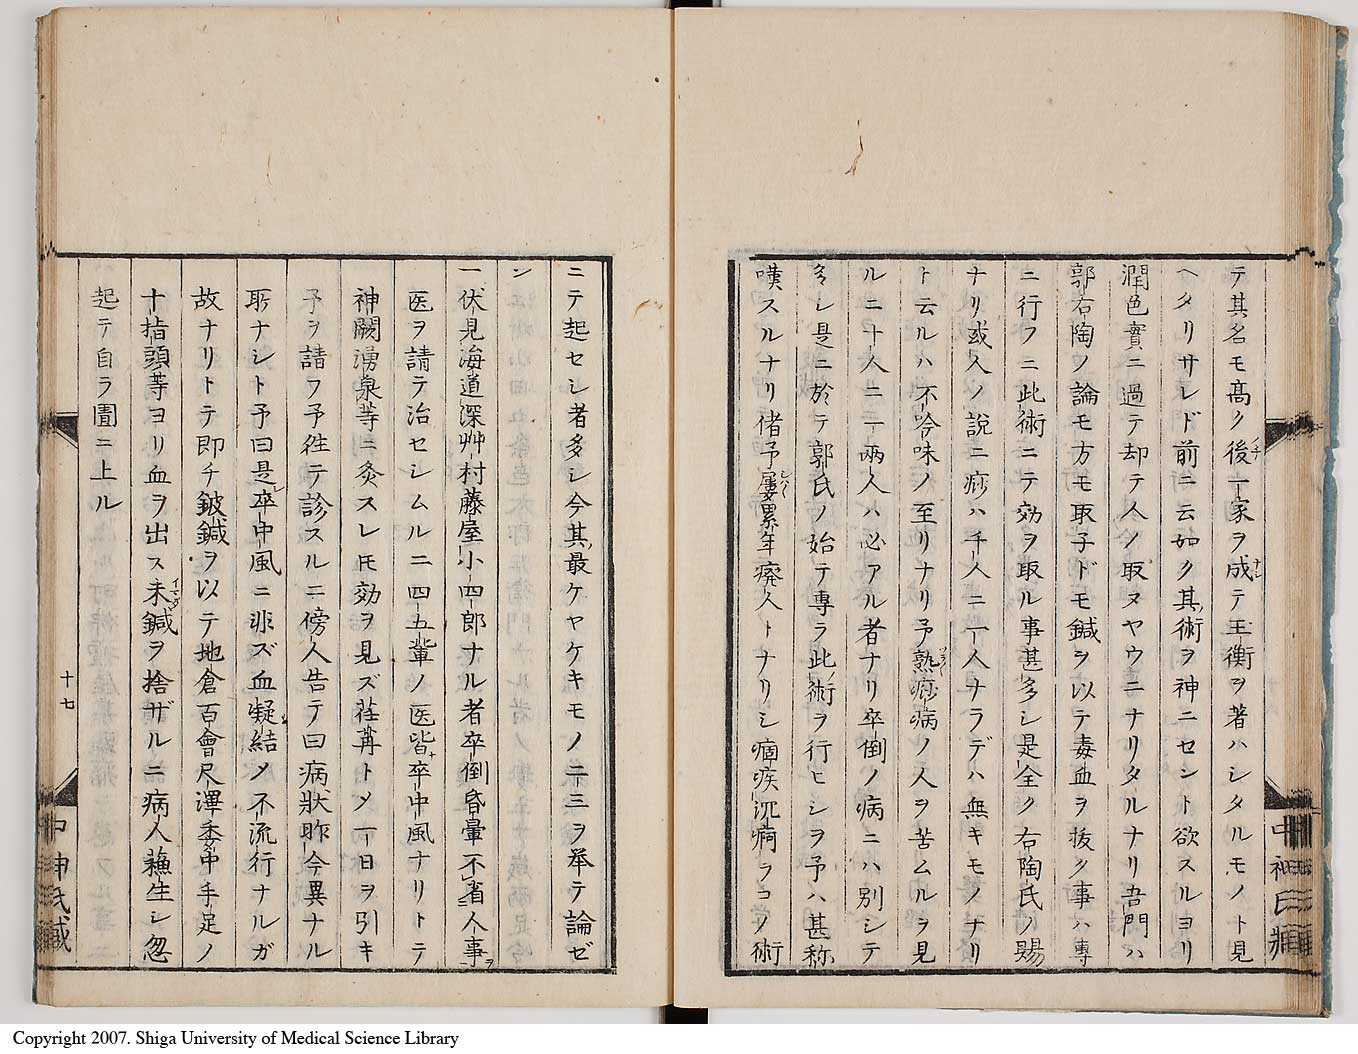 テ其名モ髙ク後一家ヲ成テ玉衡ヲ著ハシタルモノト見
ヘタリサレド前ニ云如ク其術ヲ神ニセント欲スルヨリ
潤色實ニ過テ却テ人ノ取ヌヤウニナリタルナリ吾門ハ
郭右陶ノ論モ方モ取子ドモ鍼ヲ以テ毒血ヲ抜ク事ハ專
ニ行フニ此術ニテ効ヲ取ル事甚多シ是全ク右陶氏ノ賜
ナリ或人ノ説ニ痧ハ千人ニ一人ナラデハ無キモノナリ
ト云ルハ不吟味ノ至リナリ予熟痧病ノ人ヲ苦ムルヲ見
ルニ十人ニ一兩人ハ必アル者ナリ卒倒ノ病ニハ別シテ
多シ是ニ於テ郭氏ノ始テ專ラ此術ヲ行ヒシヲ予ハ甚称
嘆スルナリ偖予屢累年癈人トナリシ痼疾沉痾ヲコノ術
ニテ起セシ者多シ今其最ケヤケキモノ二三ヲ挙テ論ゼ
ン
一伏見海道深艸村藤屋小四郎ナル者卒倒昏暈不省人事ヲ
医ヲ請テ治セシムルニ四五輩ノ医皆卒中風ナリトテ
神闕湧泉等ニ灸スレ𪜈効ヲ見ズ荏苒トメ一日ヲ引キ
予ヲ請フ予徃テ診スルニ傍人告テ曰病状昨今異ナル
取ナシト予曰是卒中風ニ非ズ血凝結メ不流行ナルガ
故ナリトテ即チ鈹鍼ヲ以テ地倉百會尺澤委中手足ノ
十指頭等ヨリ血ヲ出ス未鍼ヲ捨ザルニ病人蘓生シ忽
起テ自ラ圊ニ上ル
十七